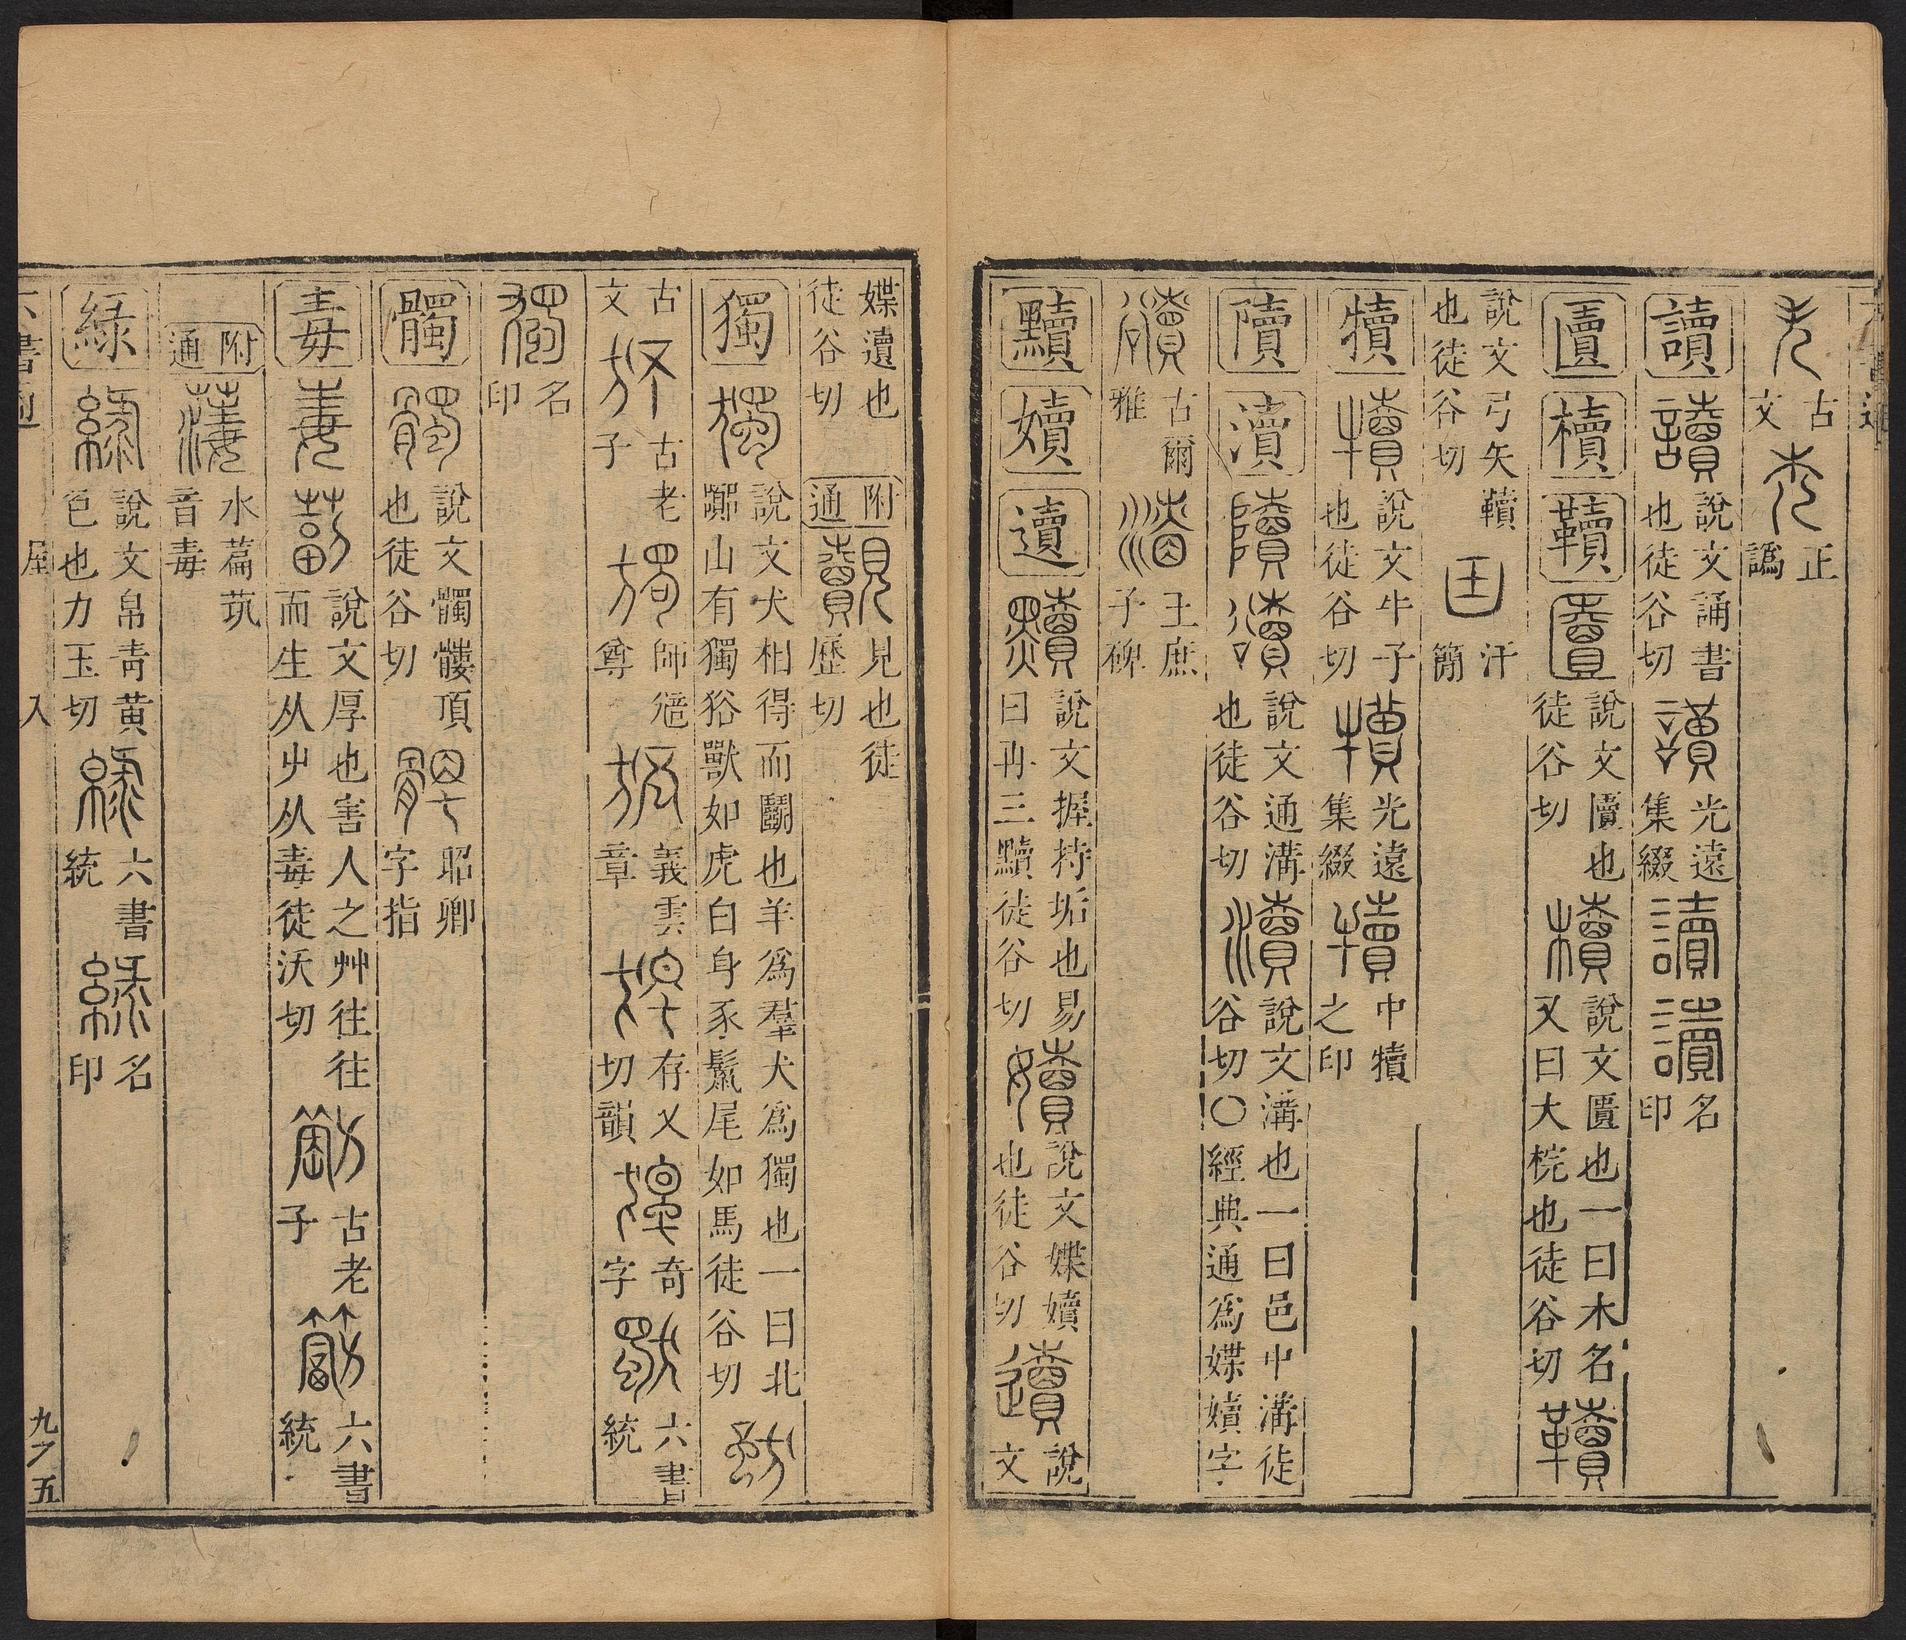 古文 正譌
讀 說文誦書也徒谷切 光遠集綴 名印
匵 櫝 韇 說文匱也徒谷切 說文匱也一曰木名又曰大梡也徒谷切
說文弓矢韇也徒谷切 汗簡
犢 說文牛子也徒谷切 光遠集綴 中犢之印
隫 瀆 說文通溝也徒谷切 說文溝也一曰邑中溝徒谷切〇經典通爲媟嬻字
古爾雅 王庶子碑
黷 嬻 遺 說文握持垢也易曰再三黷徒谷切 說文媟嬻也徒谷切 說文
媟遺也徒谷切 附通 見也徒歷切
獨 說文犬相得而鬭也羊爲羣犬爲獨也一曰北嚻山有獨㹱獸如虎白身豕鬣尾如馬徒谷切
古文 古老子 師𨒪尊 義雲章 存乂切韻 奇字 六書統
名印
髑 說文髑髏頂也徒谷切 昭卿字指
毒 說文厚也害人之艸往往而生从屮从毒徒沃切 古老子 六書統
附通 水萹茿音毒
綠 說文帛青黃色也力玉切 六書統 名印
六書通 屋 入 九 五